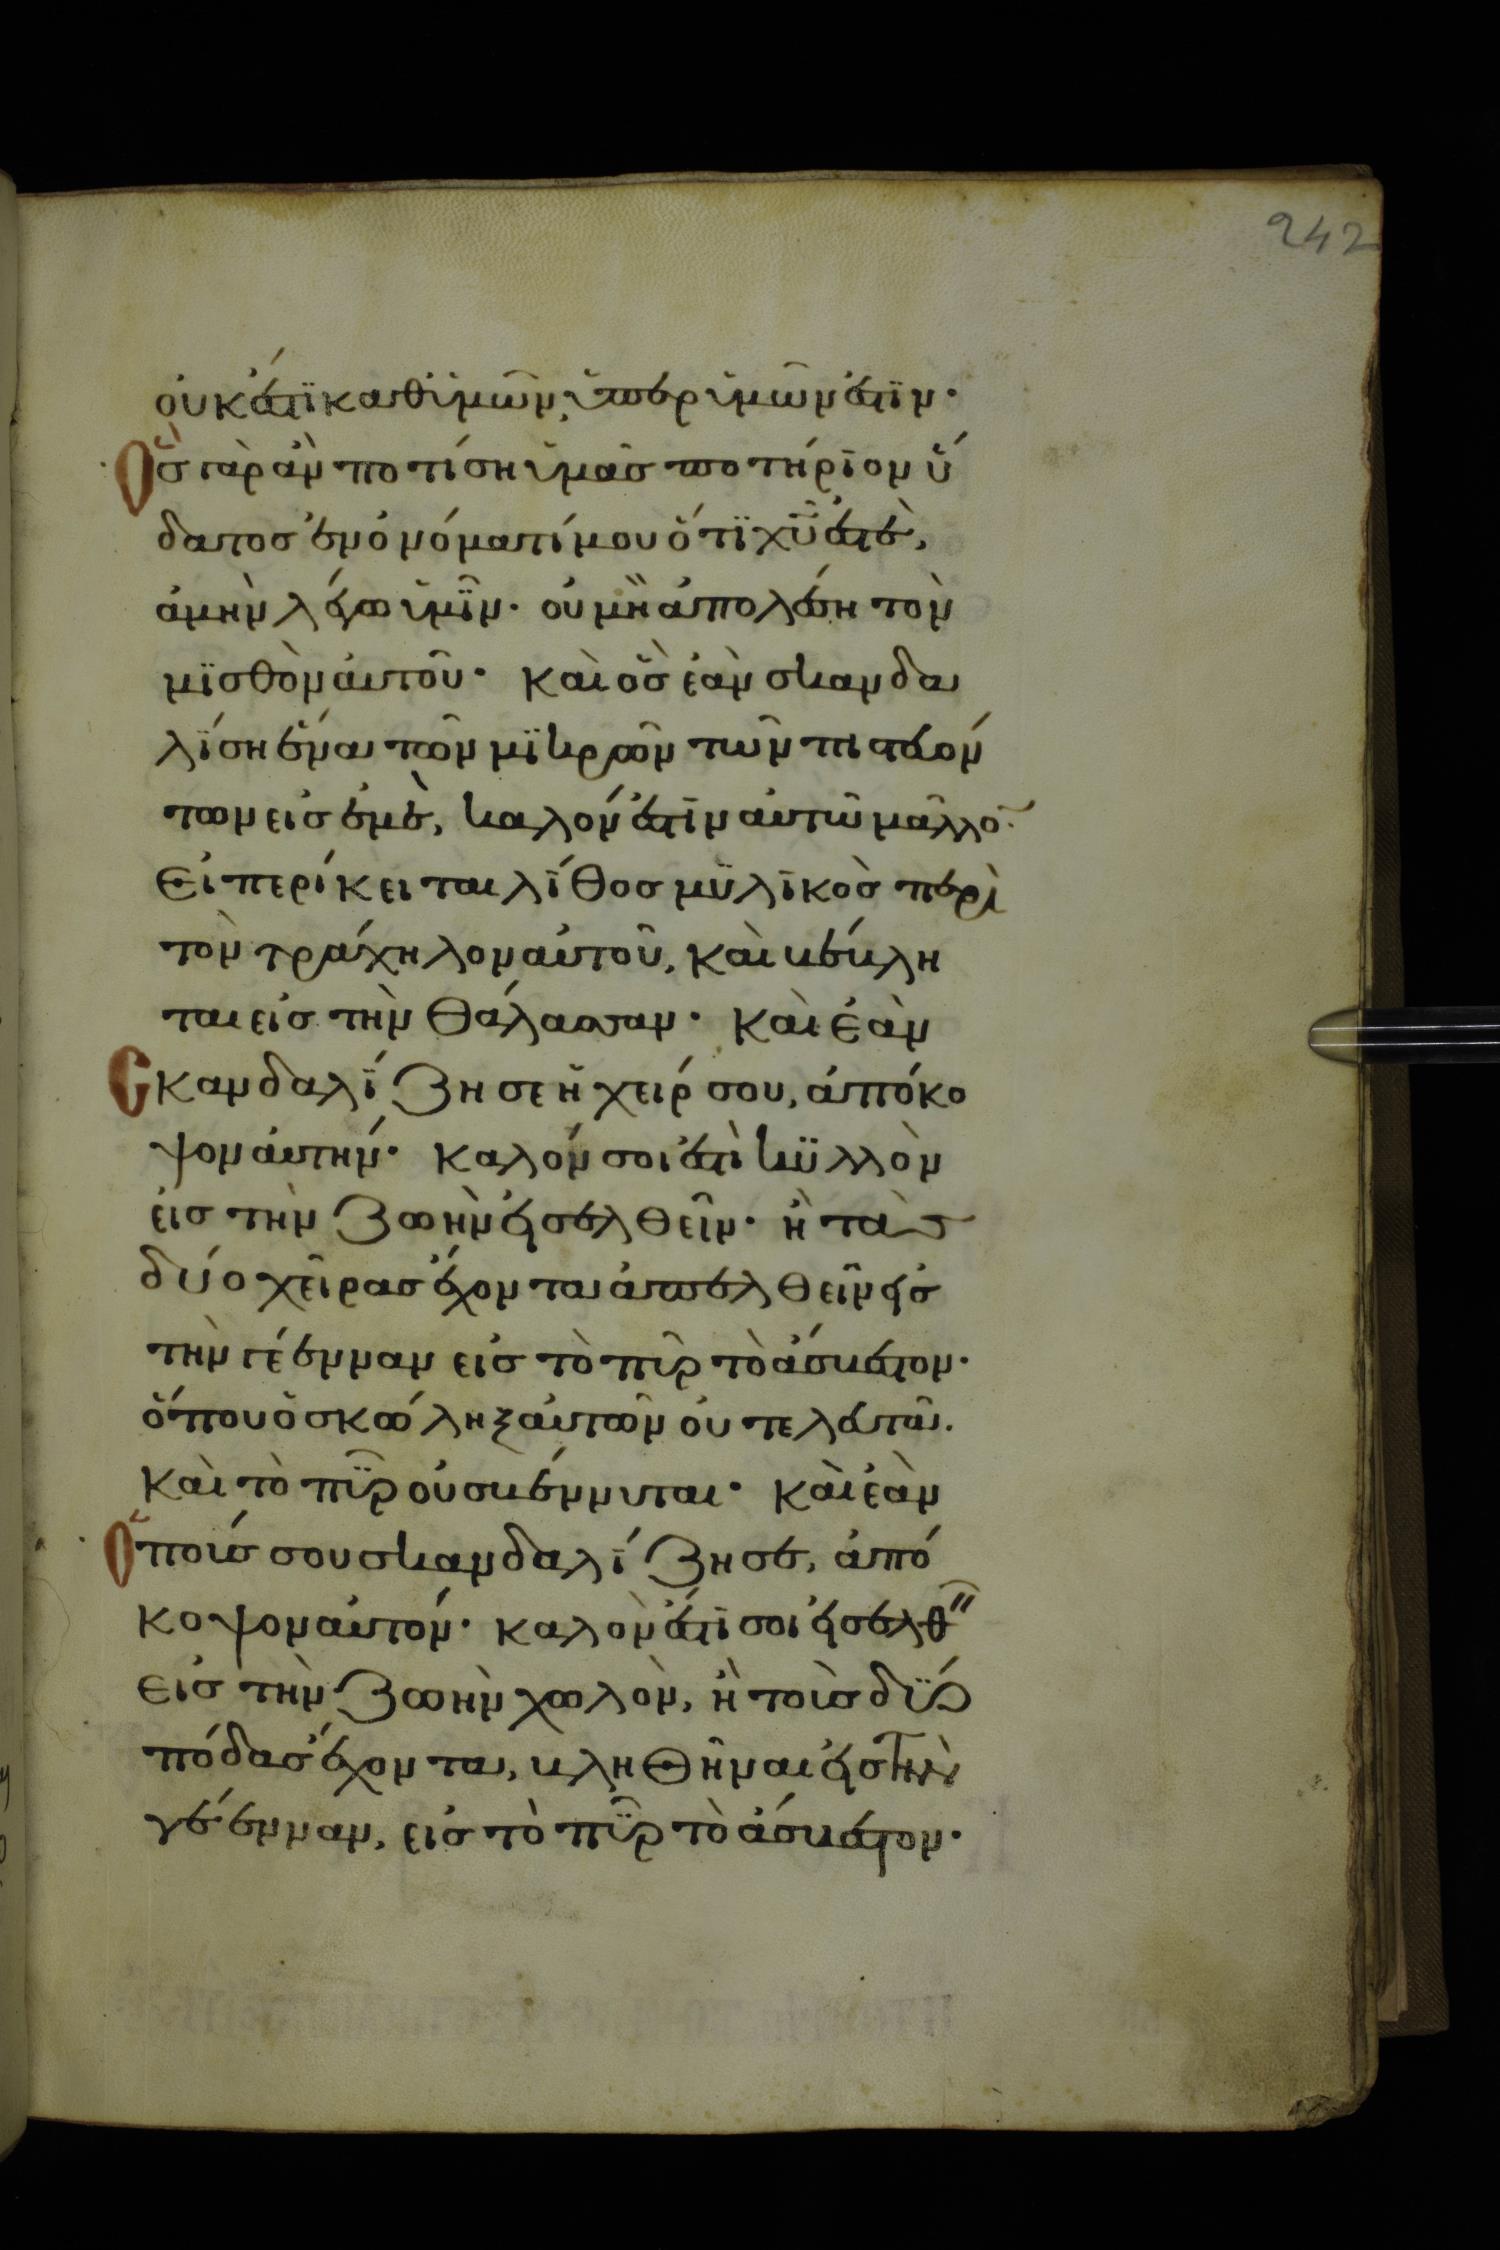 242
οὐκ ἔστϊ καθ ὑμῶν, ὑπὲρ ὑμῶν ἐστϊν·
Ὃς γὰρ ἂν ποτίση ὑμᾶς ποτήριον ὕ
δατος ἐν ὀνόματί μου ὅτϊ χῦ ἐστὲ,
ἀμὴν λέγω ὑμῖν· οὐ μὴ ἀπολέση τὸν
μϊσθὸν αὐτοῦ· καὶ ὃς ἐὰν σκανδα
λΐση ἕνα τῶν μϊκρῶν τῶν πιστευόν
των εἰς ἐμὲ, καλόν ἐστιν αὐτῶ μᾶλλο͂·
εἰ περίκειται λίθος μϋλικὸς περὶ
τὸν τράχηλον αὐτοῦ, καὶ βέβλη
ται εἰς τὴν θάλασσαν· καὶ ἐὰν
σκανδαλΐζη σε ἡ χείρ σου, ἀπόκο
ψον αὐτήν· καλόν σοι ἐστὶ κϋλλὸν
εἰς τὴν ζωὴν εἰσελθεῖν· ἢ τὰς
δύο χεῖρας ἔχοντα ἀπελθεῖν εἰς
τὴν γέενναν εἰς τὸ πῦρ τὸ ἄσβεστον·
ὅπου ὁ σκώληξ αὐτῶν οὐ τελευτᾶ.
καὶ τὸ πῦρ οὐ σβέννυται· καὶ ἐὰν
ὁ πούς σου σκανδαλΐζη σε, ἀπό
κοψον αὐτόν· καλὸν ἐστί σοι εἰσελθ
εἰς τὴν ζωὴν χωλὸν, ἢ τοὺς δύο
πόδας ἔχοντα, βληθῆναι εἰς τὴν
γέενναν, εἰς τὸ πῦρ τὸ ἄσβεστον·